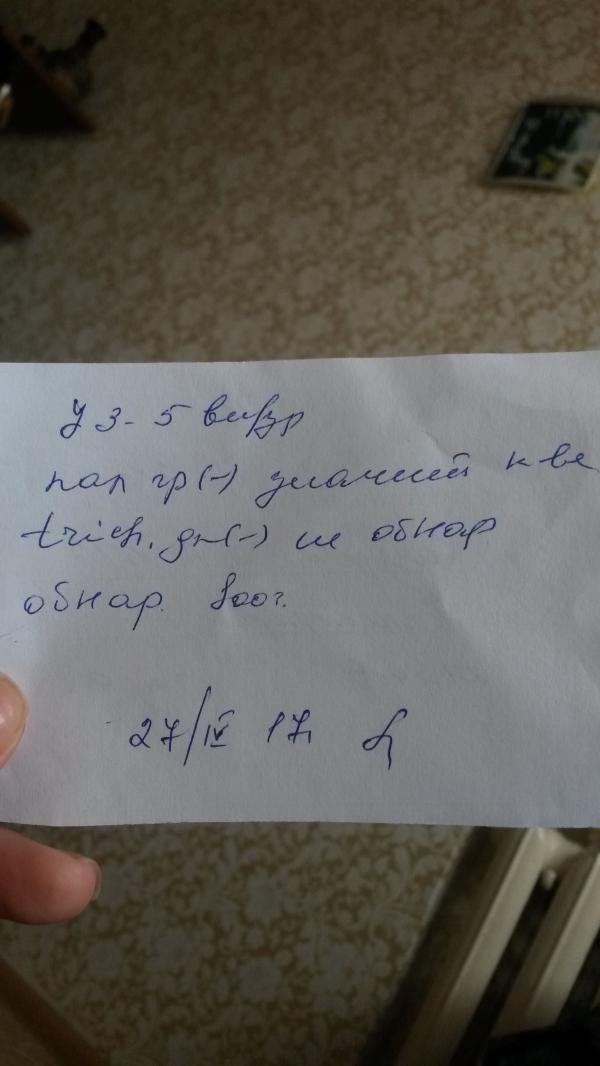 У 3-5 в п/зр
пал гр(-) значит к-ве
trich, gn(-) не обнар
обнар.
27/IV 17г